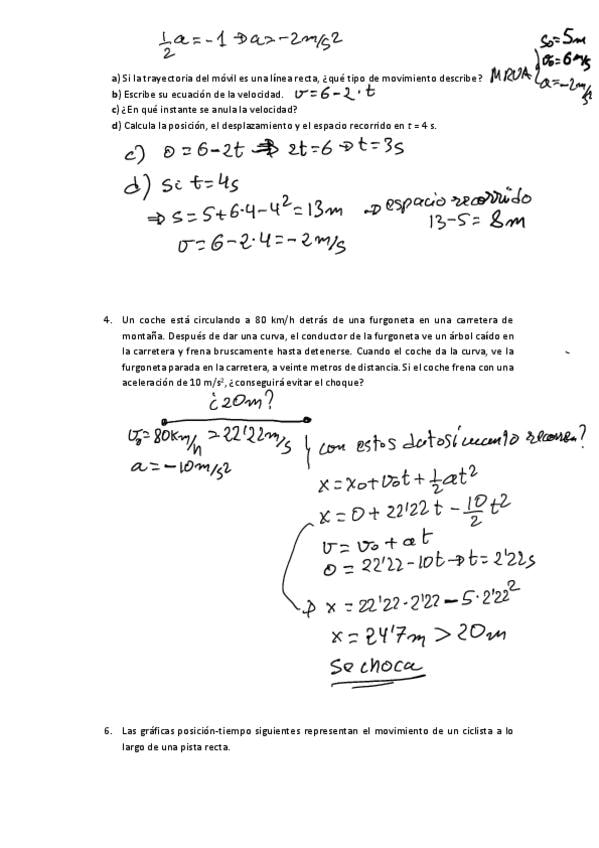 ½a = -1 → a = -2 m/s2
s₀ = 5m
v₀ = 6 m/s
a = -2 m/s
a) Si la trayectoria del móvil es una línea recta, ¿qué tipo de movimiento describe? MRUA
b) Escribe su ecuación de la velocidad. v = 6 - 2·t
c) ¿En qué instante se anula la velocidad?
d) Calcula la posición, el desplazamiento y el espacio recorrido en t = 4 s.
c) 0 = 6 - 2t ⇒ 2t = 6 → t = 3s
d) si t = 4s
⇒ s = 5 + 6·4 - 4² = 13m → espacio recorrido
13 - 5 = 8m
v = 6 - 2·4 = -2 m/s
4. Un coche está circulando a 80 km/h detrás de una furgoneta en una carretera de
montaña. Después de dar una curva, el conductor de la furgoneta ve un árbol caído en
la carretera y frena bruscamente hasta detenerse. Cuando el coche da la curva, ve la
furgoneta parada en la carretera, a veinte metros de distancia. Si el coche frena con una
aceleración de 10 m/s², ¿conseguirá evitar el choque?
¿20m?
v₀ = 80 km/h = 22'22 m/s
a = -10 m/s2
con estos datos ¿cuánto recorre?
x = x₀ + v₀t + ½at²
x = 0 + 22'22 t - 10/2 t²
v = v₀ + at
0 = 22'22 - 10t → t = 2'22s
→ x = 22'22·2'22 - 5·2'22²
x = 24'7m > 20m
Se choca
6. Las gráficas posición-tiempo siguientes representan el movimiento de un ciclista a lo
largo de una pista recta.